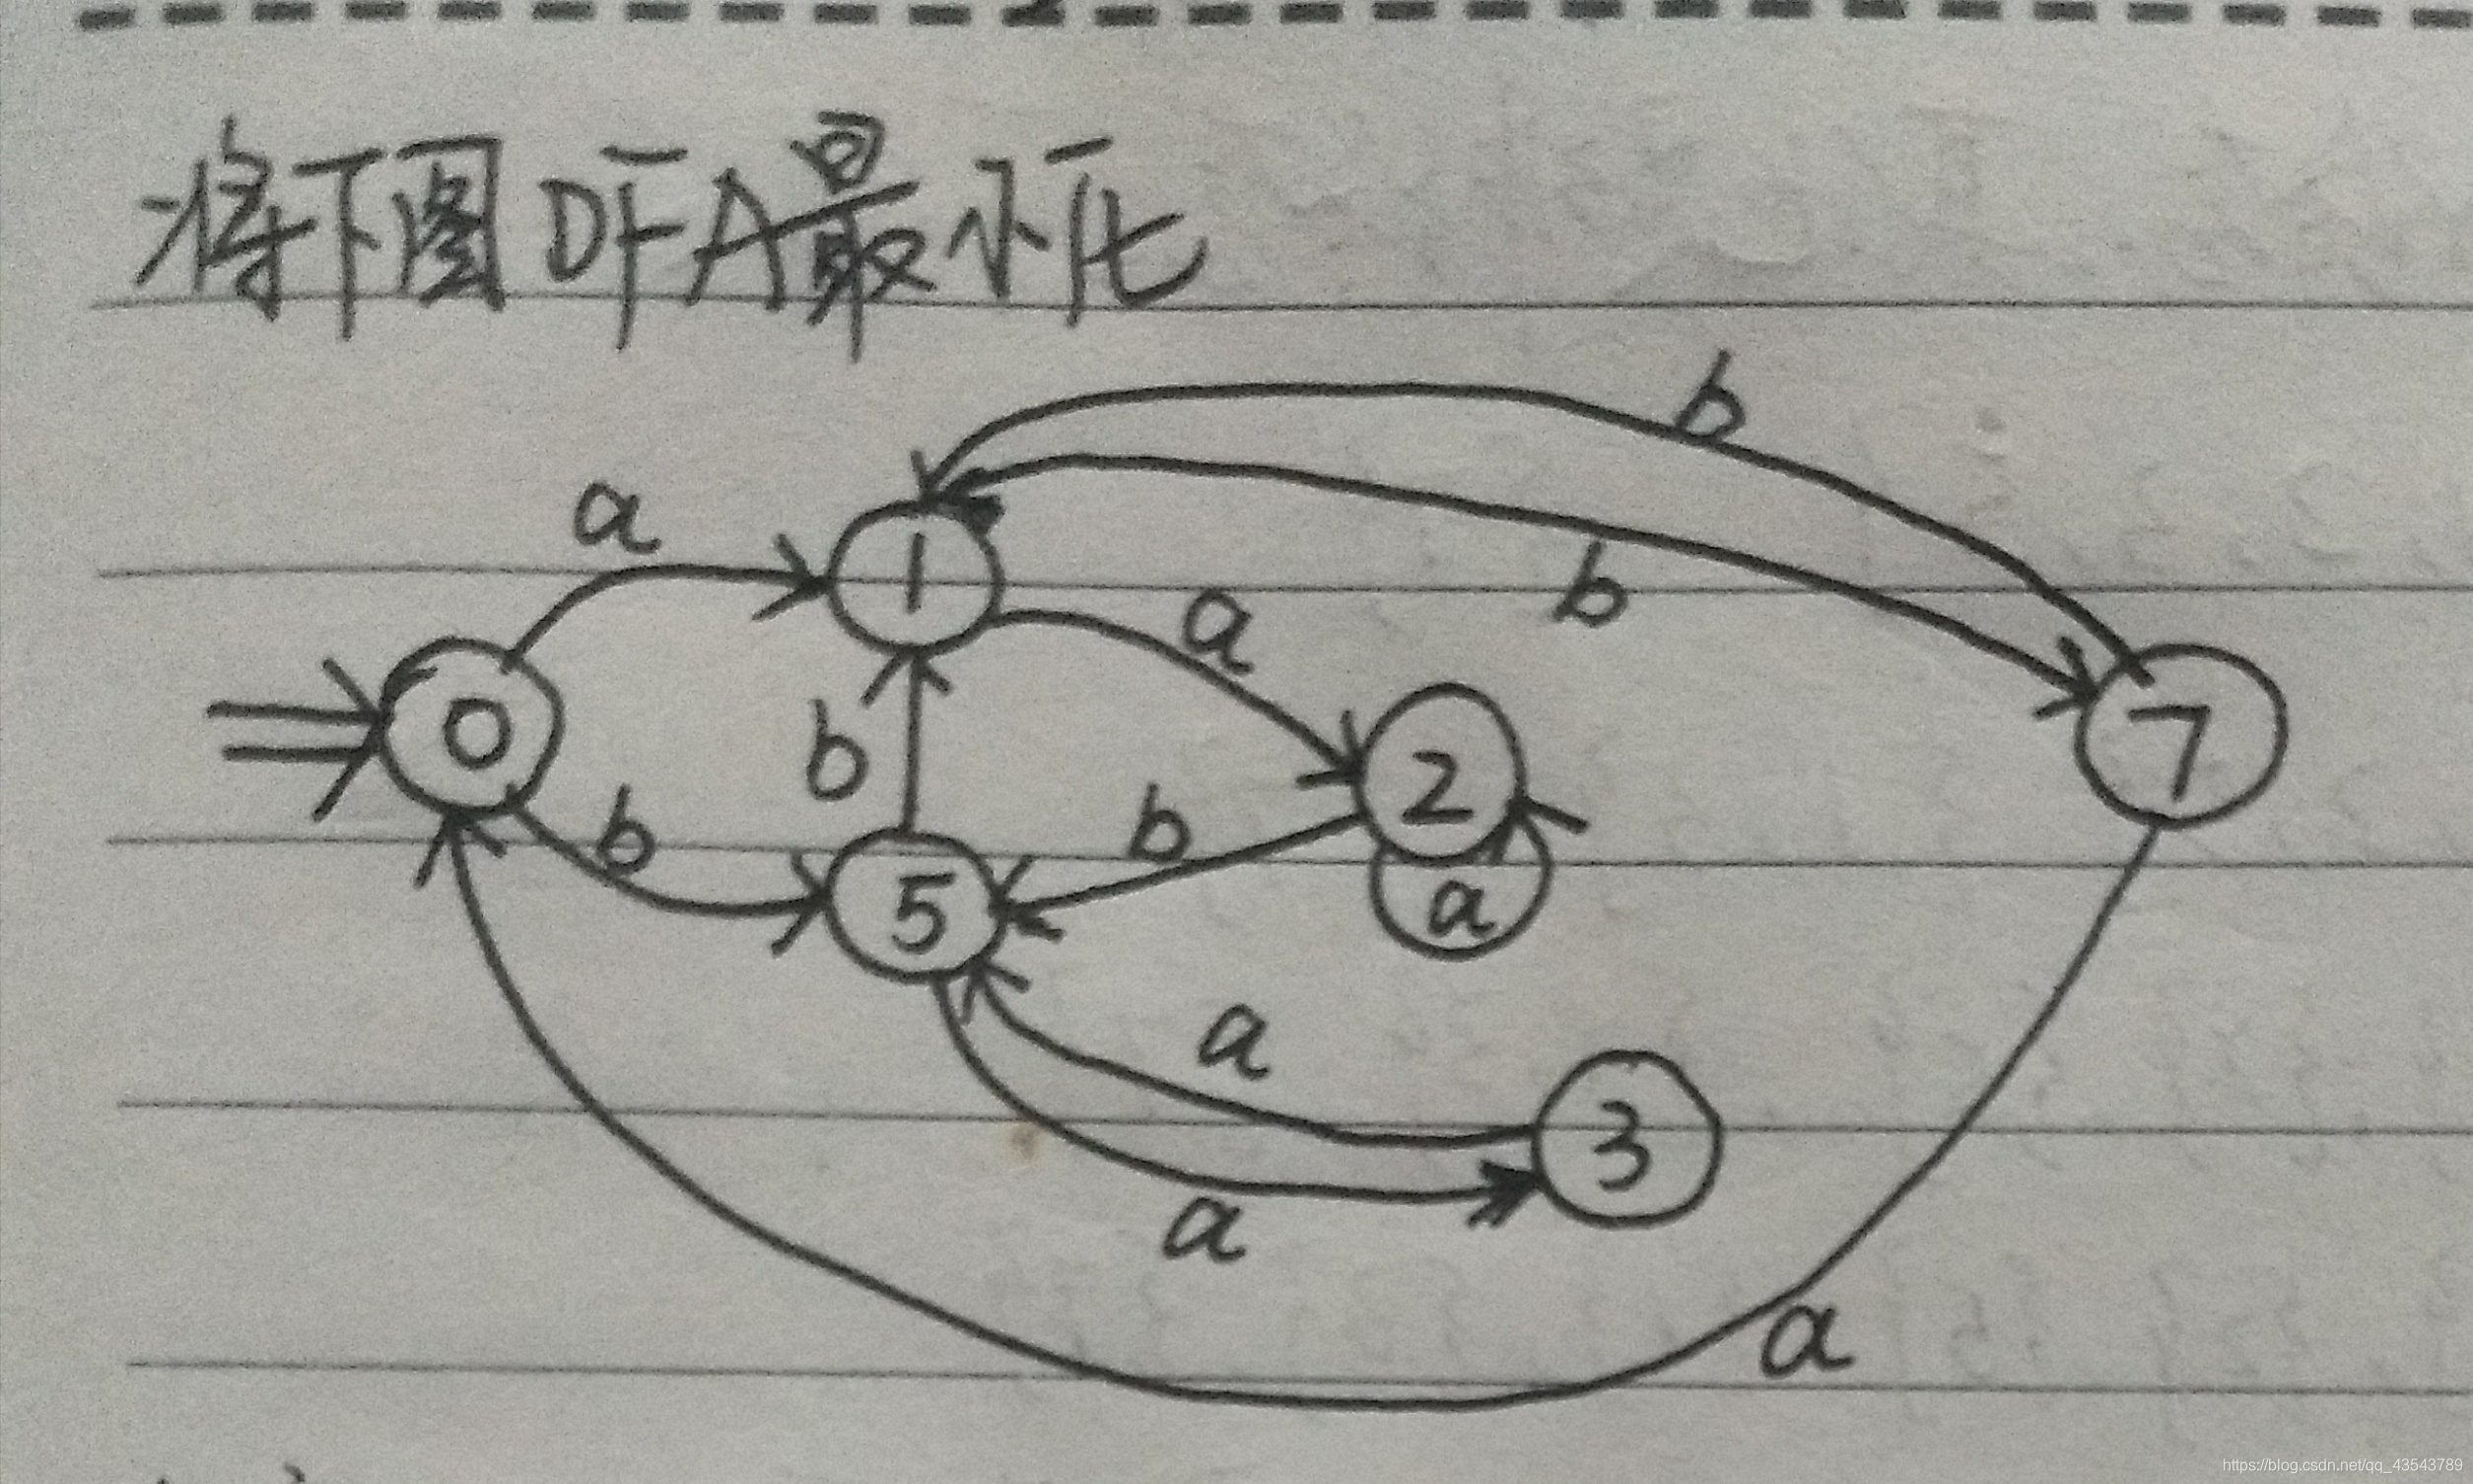 将下图DFA最小化
b
a
1
b
a
0
b
7
2
b
b
5
a
a
3
a
a
https://blog.csdn.net/qq_43543789